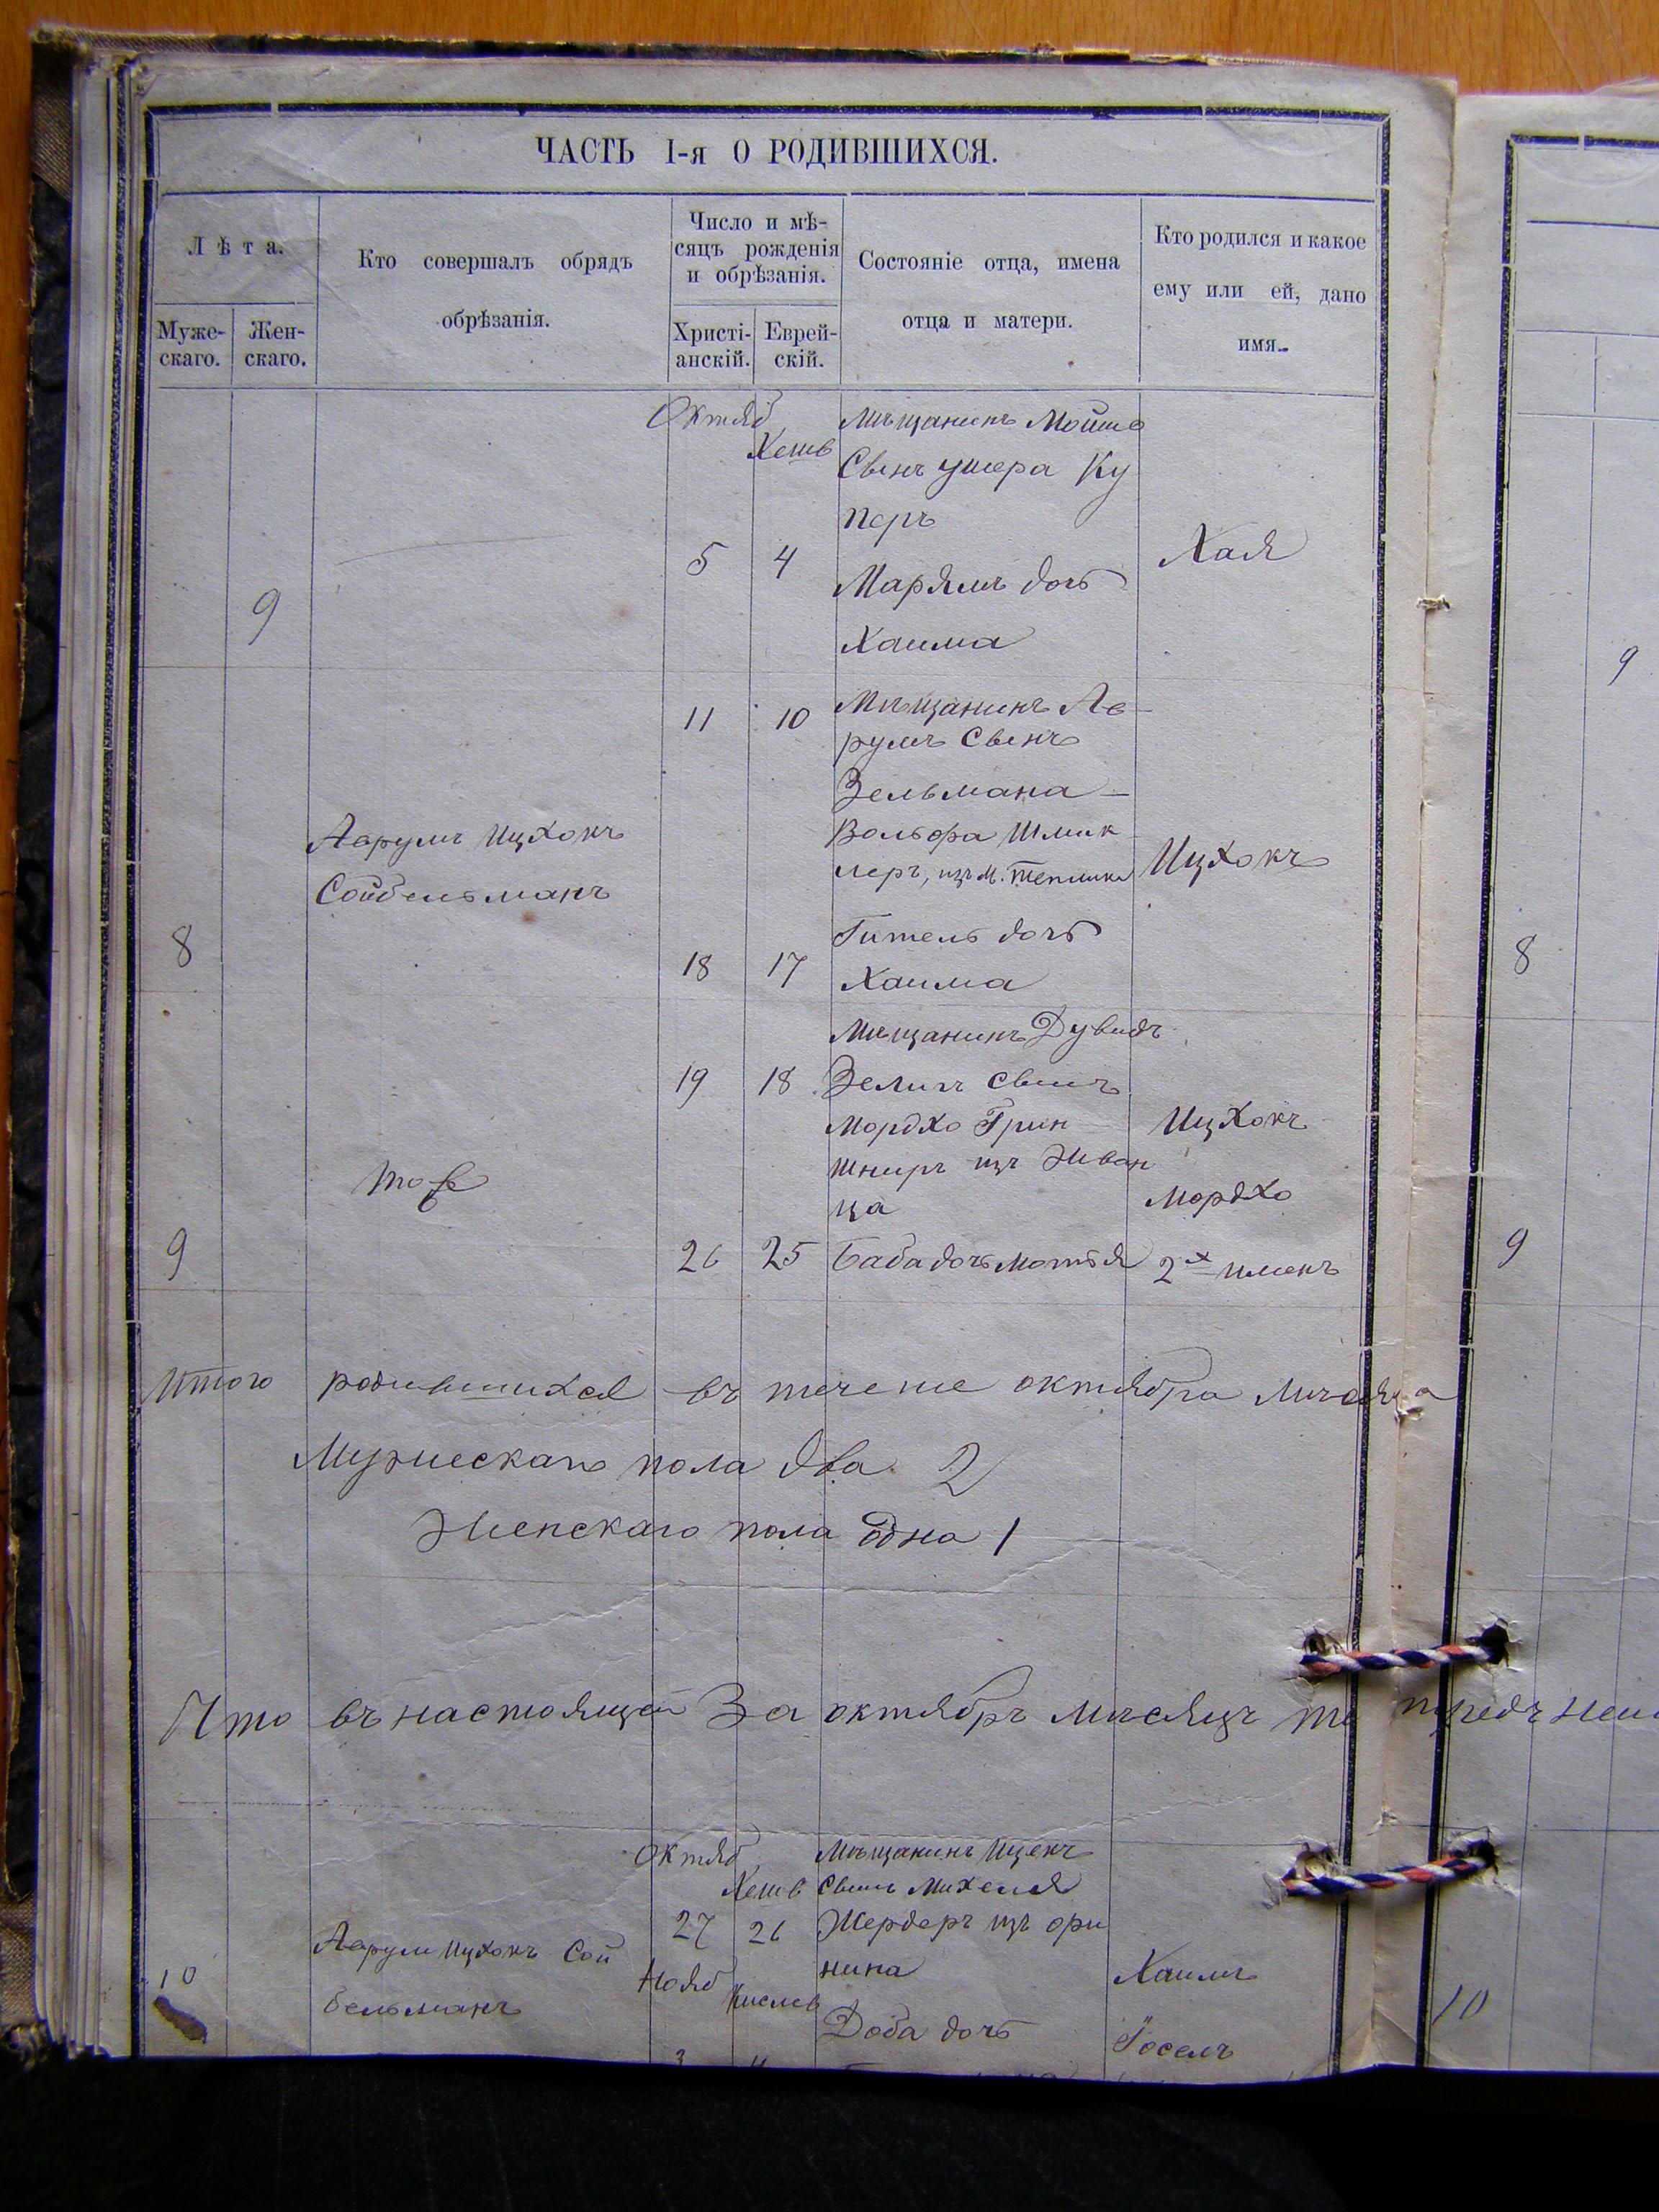 ЧАСТЬ I-я О РОДИВШИХСЯ.
Лѣта.
Муже-
скаго.
Жен-
скаго.
Кто совершалъ обрядъ
обрѣзанія.
Число и мѣ-
сяцъ рожденія
и обрѣзанія.
Христі-
анскій.
Еврей-
скій.
Состояніе отца, имена
отца и матери.
Кто родился и какое
ему или ей, дано
имя.
9
Октяб
Хешв
5
4
Мѣщанинъ Мойше
Свенъ Умера Ку
перъ
Марямъ дочь
Хаима
Хая
9
8
Аврумъ Ицхокъ
Сойбельманъ
11
10
18
17
Мѣщанинъ Ав-
румъ Свенъ
Зельмана-
Вольфа Шмик
леръ, изъ М. Теплика
Гитель дочь
Хаима
Ицхокъ
8
9
тоже
19
18
26
25
Мѣщанинъ Дувидъ
Зелигъ Свинъ
Мордхо Грин
шниръ изъ Жван
ца
Баба дочь Мотья
Ицхокъ
Мордхо
2х именъ
9
Итого родившихся въ течение октября мѣсяца
Мужескаго пола два 2
Женскаго пола одна 1
Что въ настоящей За октябръ мѣсяцъ те предъ
10
Аврум Ицхокъ Сой
бельманъ
Октяб
Хешв
27
26
Нояб
Кислев
3
Мѣщанинъ Ицекъ
Свинъ Михеля
Жердеръ изъ Ори
нина
Доба дочь
Хаимъ
Іоселъ
10